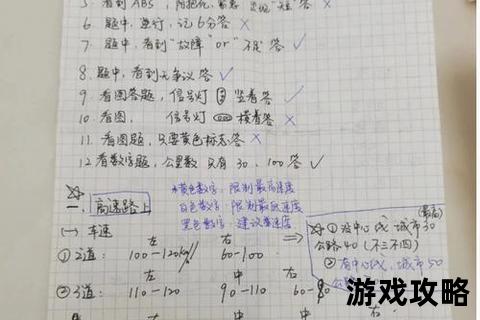 5. 看到ABS
6 题中,逆行,记6分答 ×
7. 题中,看到"故障"or"不良"答 ✓
8. 题中,看到无争议答 ✓
9 看图答题,信号灯 竖着答 ✓
10 看图, 信号灯 横着答 ×
11. 看图题,只要黄色标志答 ×
12 看数字题,公里数 只有 30、100 答 ✓
一. 高速路上
黄色数字:限制最高速度
白色数字:限制最低速度
黑色数字:建议速度
(一) 车速
左 右
① 2道: 100—120km/ 60-100
左 中 右
② 3道: 110—120 90—110 60-
⇒ ① 没中心线,城市30
公路40 (不三不四)
② 有中心线,城市50
公路
左 中 中 右
游戏攻略